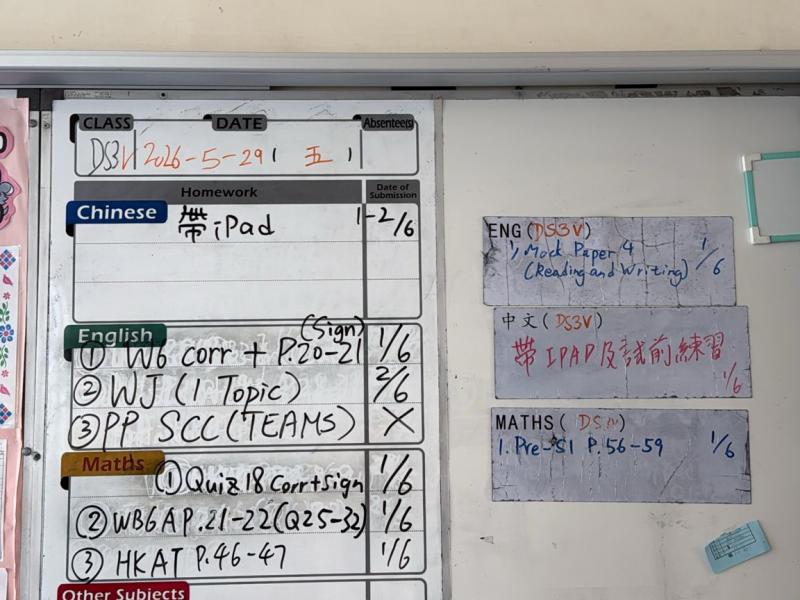 CLASS DATE Absentee(s)
DS3V 2026-5-29 ( 五 )
Homework Date of Submission
Chinese 帶 iPad 1-2/6
English (Sign)
① W6 corr + P.20-21 1/6
② WJ (1 Topic) 2/6
③ PP SCC (TEAMS) X
Maths ① Quiz 18 corr+sign 1/6
② WB6A P.21-22 (Q25-32) 1/6
③ HKAT P.46-47 1/6
Other Subjects
ENG (DS3V)
1, Mock Paper 4 1/6
(Reading and Writing)
中文 (DS3V)
帶 IPAD 及試前練習
1/6
MATHS (
1. Pre-S1 P.56-59 1/6